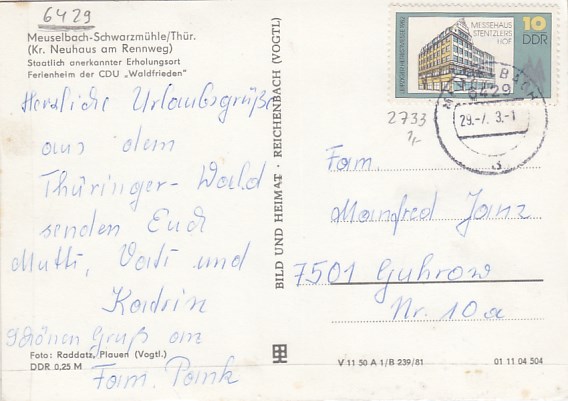 6429
Meuselbach-Schwarzmühle/Thür.
(Kr. Neuhaus am Rennweg)
Staatlich anerkannter Erholungsort
Ferienheim der CDU „Waldfrieden"
Herzliche Urlaubsgrüße
aus dem
Thüringer-Wald
senden Euch
Mutti, Vati und
Katrin
Schönen Gruß an
Fam. Pank
Foto: Raddatz, Plauen (Vogtl.)
DDR 0,25 M
BILD UND HEIMAT · REICHENBACH (VOGTL)
MESSEHAUS
STENTZLERS
HOF
10
DDR
LEIPZIGER HERBSTMESSE 1982
6429
29.-7. 3.-1
2733
1,-
Fam.
Manfred Janz
7501 Guhrow
Nr. 10a
V 11 50 A 1/B 239/81
01 11 04 504